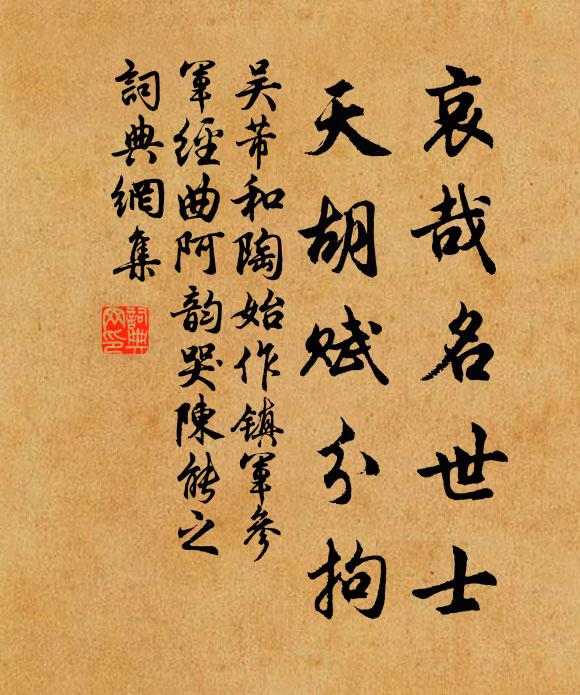 哀哉名世士
天胡赋分拘
吴芾和陶始作镇军参
军經曲阿韵哭陳能之
詞典網集
詞典網印